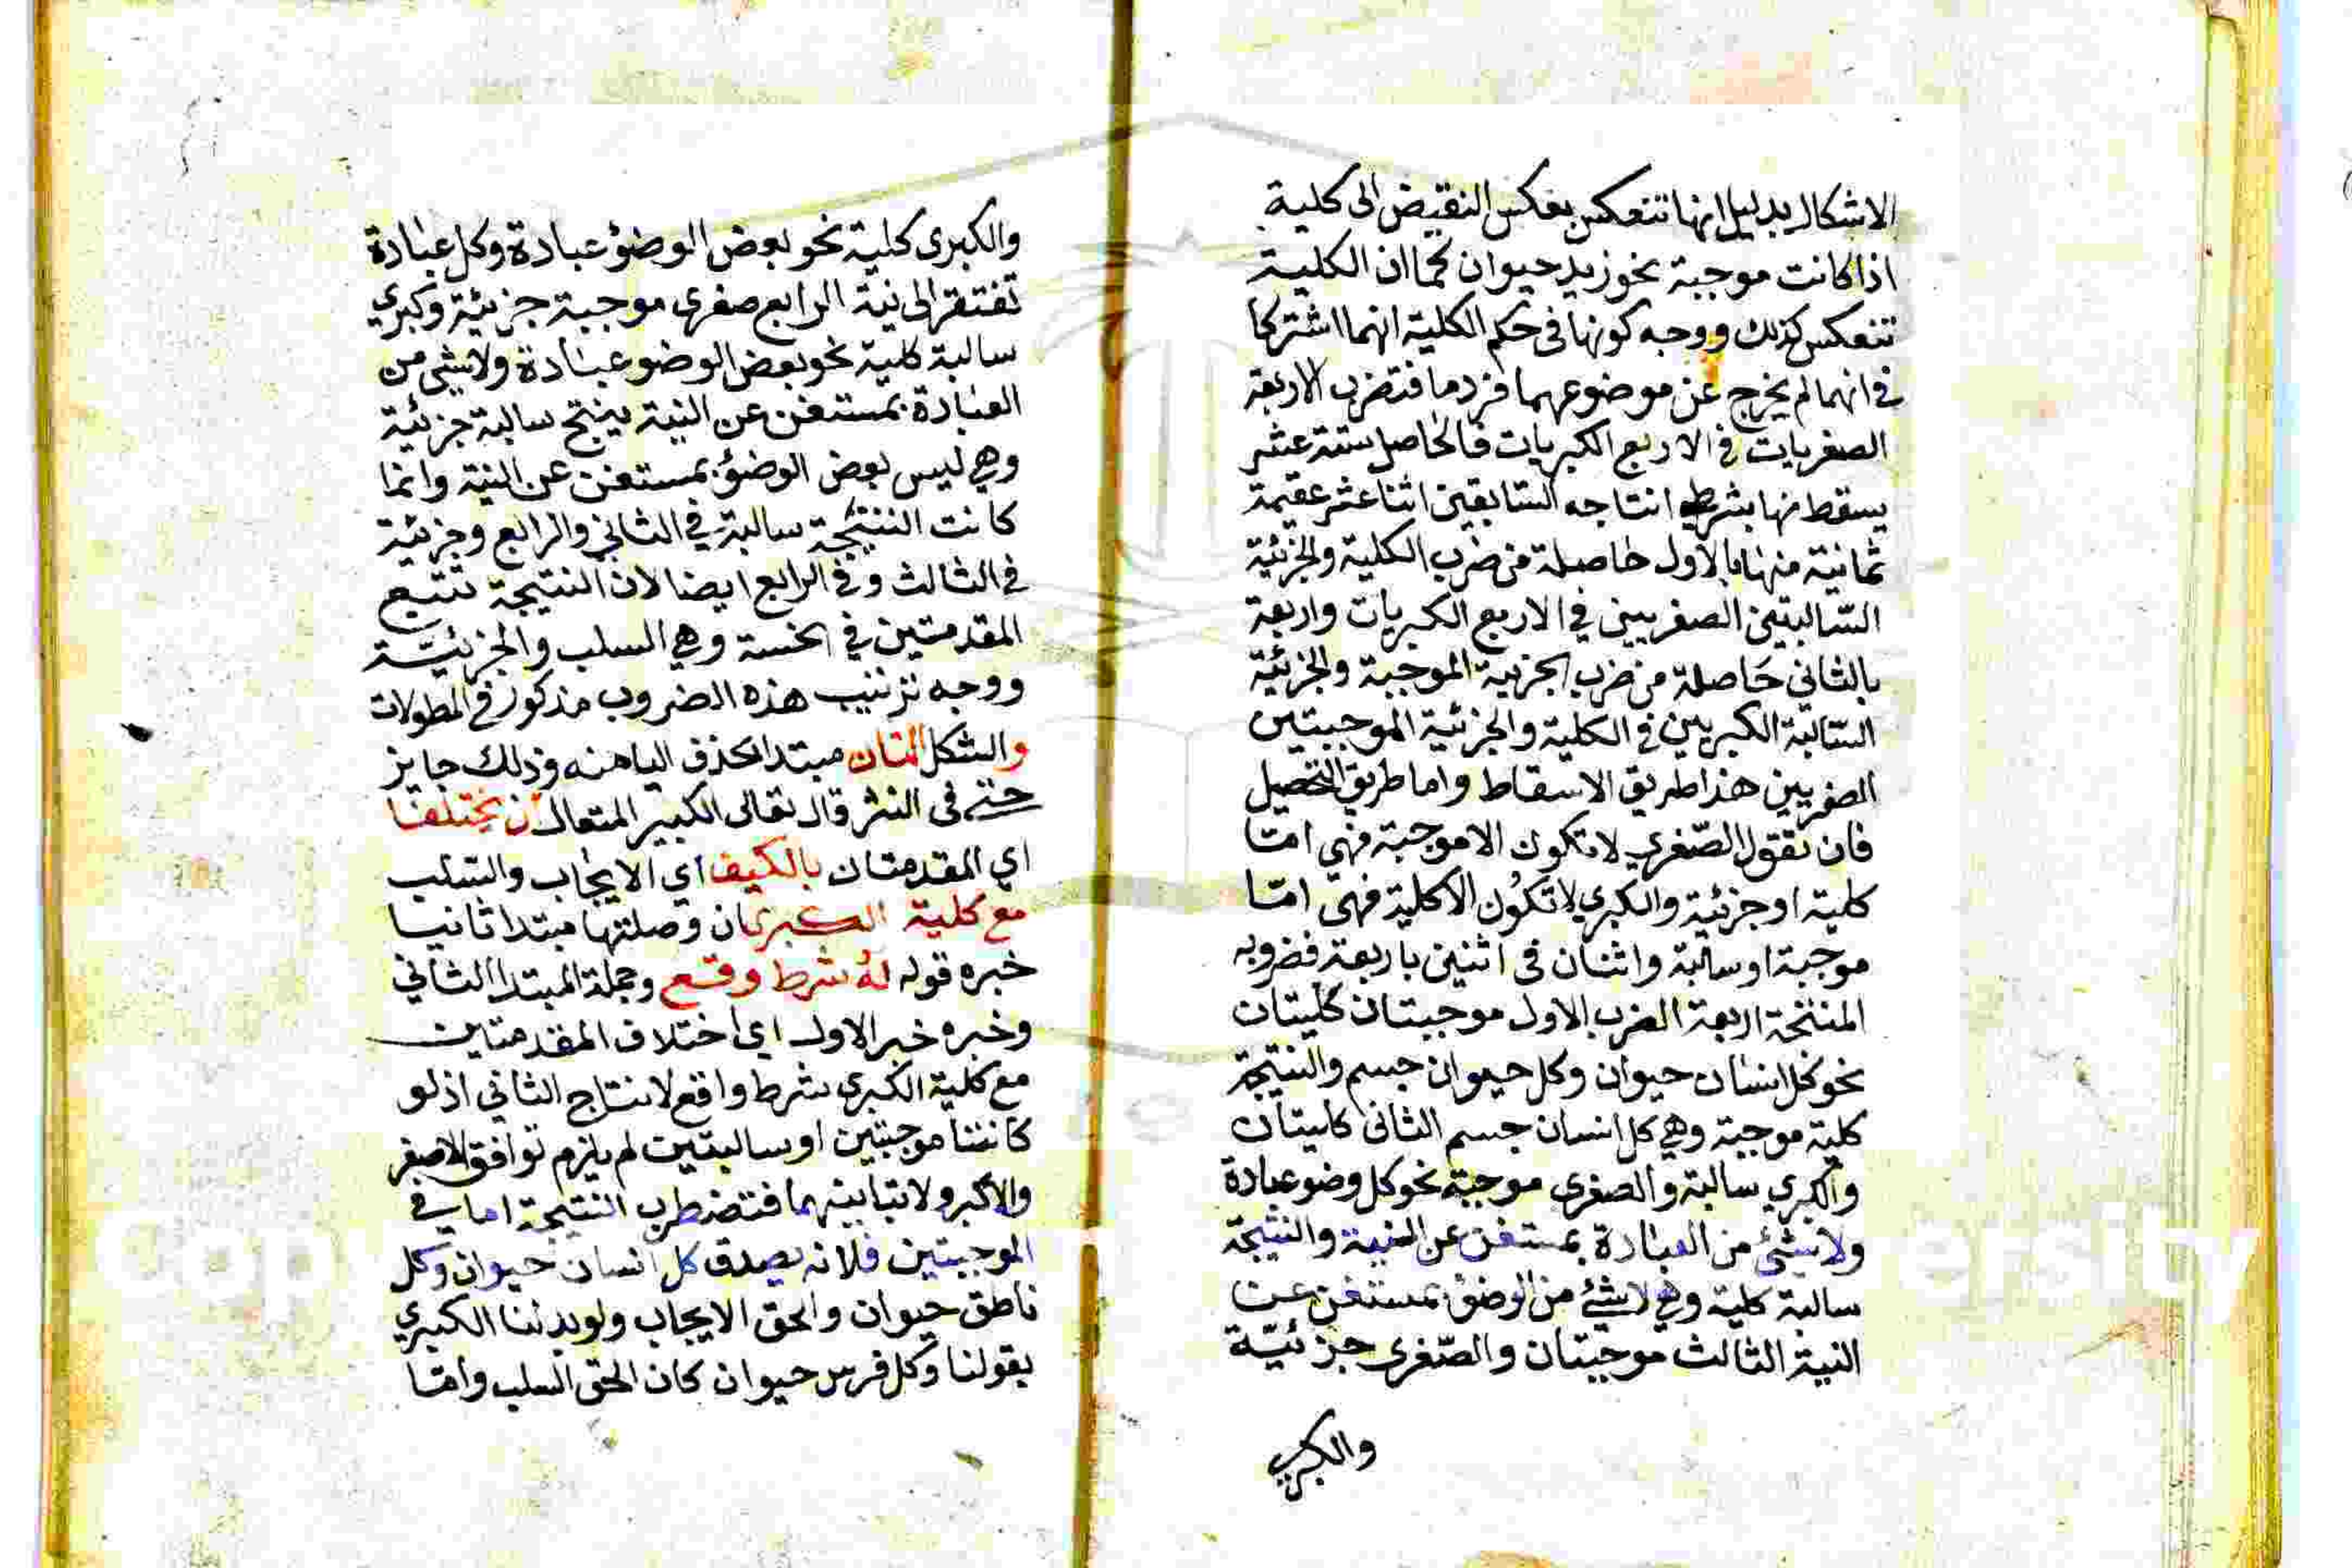 الاشكال بدليل انها تنعكس بعكس النقيض الى كلية
اذا كانت موجبة نحو زيد حيوان كما ان الكلية
تنعكس كذلك ووجه كونها في حكم الكلية انهما اشتركا
في انهما لم يخرج عن موضوعهما فرد ما فتضرب الاربعة
الصغريات في الاربع الكبريات فالحاصل ستة عشر
يسقط منها بشرطي انتاجه السابقين اثنا عشر عقيمة
ثمانية منها بالاول حاصلة من ضرب الكلية والجزئية
السّالبتين الصغريين في الاربع الكبريات واربعة
بالثاني حَاصلة من ضرب الجزئية الموجبة والجزئية
السّالبة الكبريين في الكلية والجزئية الموجبتين
الصغريين هذا طريق الاسقاط واما طريق التحصيل
فان تقول الصّغري لا تكون الا موجبة فهي امّا
كلية او جزئية والكبري لا تكُون الا كلية فهي امّا
موجبة او سالبة واثنان في اثنين باربعة فضروبه
المنتجة اربعة الضرب الاول موجبتان كليتان
نحو كل انسان حيوان وكل حيوان جسم والنتيجة
كلية موجبة وهي كل انسان جسم الثاني كليتان
والكبري سالبة والصغرى موجبة نحو كل وضو عبادة
ولا شئ من العبادة بمستغن عن النية والنتيجة
سالبة كلية وهي لا شئ من الوضؤ بمستغن عن
النية الثالث موجبتان والصّغرى جزئيّة
والكبري
والكبرى كلية نحو بعض الوضؤ عبادة وكل عبادة
تفتقر الى نية الرابع صغرى موجبة جزئية وكبري
سالبة كلية نحو بعض الوضو عبادة ولا شئ من
العبادة بمستغن عن النية ينتج سالبة جزئية
وهي ليس بعض الوضؤ بمستغن عن النية وانما
كانت النتيجة سالبة في الثاني والرابع وجزئية
في الثالث وفي الرابع ايضا لان النتيجة تتبع
المقدمتين في الخسة وهي السلب والجزئيّة
ووجه ترتيب هذه الضروب مذكور في المطولات
والشكل الثان مبتدا بحذف اليا منه وذلك جايز
حتى في النثر قال تعالى الكبير المتعال ان يختلفا
اي المقدمتان بالكيف اي الايجاب والسّلب
مع كلية الكبرى ان وصلتها مبتدا ثانيا
خبره قوله لهُ شرط وقع وجملة المبتدا الثاني
وخبره خبر الاول اي اختلاف المقدمتين
مع كلية الكبرى شرط واقع لانتاج الثاني اذ لو
كانتا موجبتين او سالبتين لم يلزم توافق الاصغر
والاكبر ولا تباينهما فتضطرب النتيجة اما في
الموجبتين فلانه يصدق كل انسان حيوان وكل
ناطق حيوان والحق الايجاب ولو بدلنا الكبري
بقولنا وكل فرس حيوان كان الحق السلب وامّا